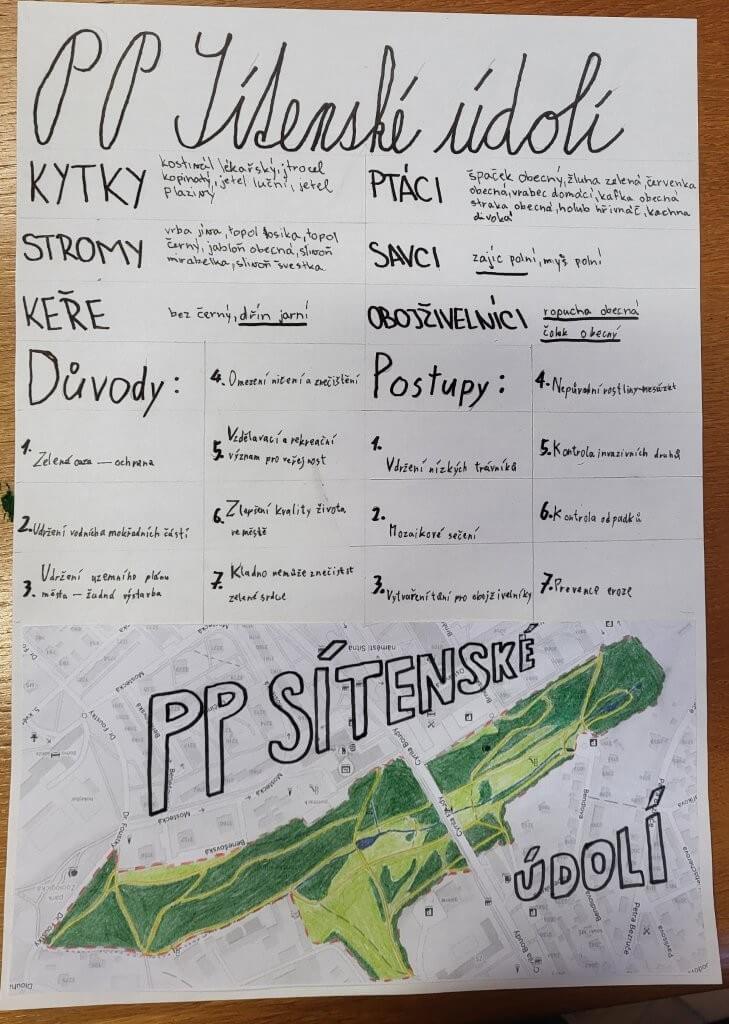 PP Sítenské údolí
KYTKY
kostival lékařský, jitrocel
kopinatý, jetel luční, jetel
plazivý
PTÁCI
špaček obecný, žluha zelená, červenka
obecná, vrabec domácí, kafka obecná
straka obecná, holub hřivnáč, kachna
divoká
STROMY
vrba jíva, topol osika, topol
černý, jabloň obecná, slivoň
mirabelka, slivoň švestka
SAVCI
zajíc polní, myš polní
KEŘE
bez černý, dřín jarní
OBOJŽIVELNÍCI
ropucha obecná
čolek obecný
Důvody:
1. Zelená oaza — ochrana
2. Udržení vodních a mokřadních částí
3. Udržení uzemního plánu
města — žádná výstavba
4. Omezení ničení a znečištění
5. Vzdělávací a rekreační
význam pro veřejnost
6. Zlepšení kvality života
ve městě
7. Kladno nemůže znečistit
zelené srdce
Postupy:
1. Udržení nízkých trávníků
2. Mozaikové sečení
3. Vytváření tání pro obojživelníky
4. Nepůvodní rostliny nesázet
5. Kontrola invazivních druhů
6. Kontrola odpadků
7. Prevence eroze
PP SÍTENSKÉ
ÚDOLÍ
náměstí Sítná
Mostecká
Dr. Foustky
Benešovská
Mostecká
Benešovská
Dr. Foustky
Cyrila Boudy
Cyrila Boudy
Cyrila Boudy
Bendlova
Bendlova
Petra Bezruče
Pavlisova
Zoologická
park
Dlouhá